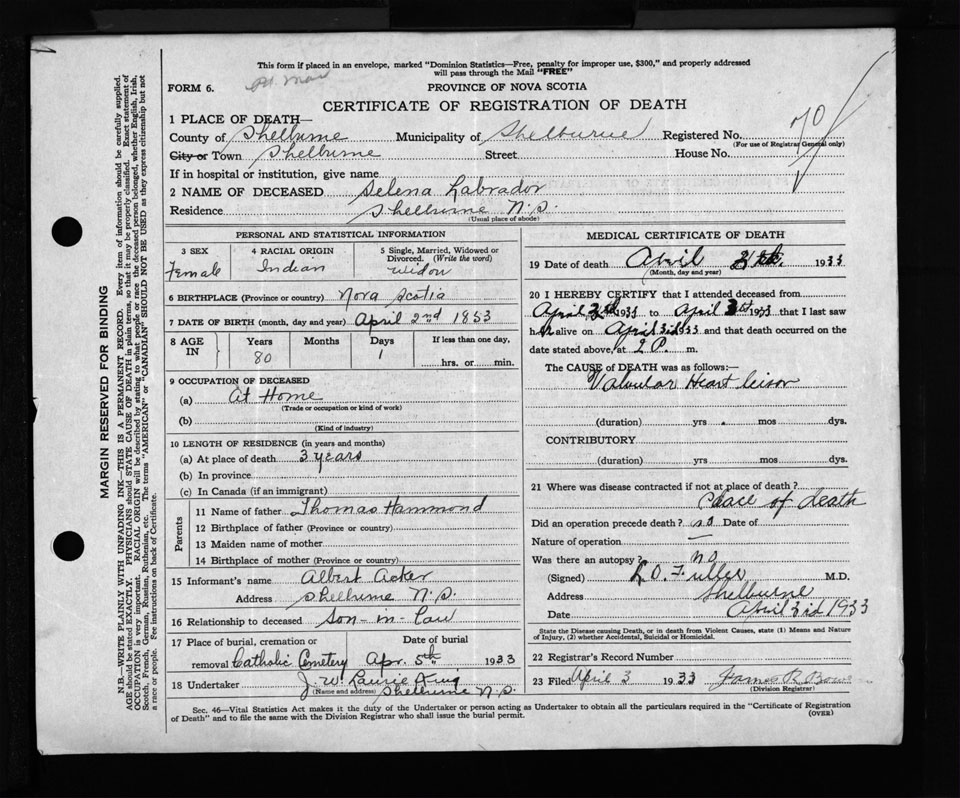 This form if placed in an envelope, marked "Dominion Statistics—Free, penalty for improper use, $300," and properly addressed
will pass through the Mail "FREE"
FORM 6.
PROVINCE OF NOVA SCOTIA
CERTIFICATE OF REGISTRATION OF DEATH
1 PLACE OF DEATH—
County of Shelburne Municipality of Shelburne Registered No. 70
(For use of Registrar General only)
City or Town Shelburne Street House No.
If in hospital or institution, give name
2 NAME OF DECEASED Selena Labrador
Residence Shelburne N.S.
(Usual place of abode)
PERSONAL AND STATISTICAL INFORMATION
3 SEX
Female
4 RACIAL ORIGIN
Indian
5 Single, Married, Widowed or
Divorced. (Write the word)
Widow
6 BIRTHPLACE (Province or country) Nova Scotia
7 DATE OF BIRTH (month, day and year) April 2nd 1853
8 AGE
IN
Years
80
Months
Days
1
If less than one day,
hrs. or min.
9 OCCUPATION OF DECEASED
(a) At Home
(Trade or occupation or kind of work)
(b)
(Kind of industry)
10 LENGTH OF RESIDENCE (in years and months)
(a) At place of death 3 years
(b) In province
(c) In Canada (if an immigrant)
Parents
11 Name of father Thomas Hammond
12 Birthplace of father (Province or country)
13 Maiden name of mother
14 Birthplace of mother (Province or country)
15 Informant's name Albert Acker
Address Shelburne N.S.
16 Relationship to deceased Son-in-law
17 Place of burial, cremation or
removal Catholic Cemetery
Date of burial
Apr. 5th 1933
18 Undertaker J. W. Laurie King
(Name and address) Shelburne N.S.
MEDICAL CERTIFICATE OF DEATH
19 Date of death April 1933
(Month, day and year)
20 I HEREBY CERTIFY that I attended deceased from
April 1933 to April 1933 that I last saw
her alive on April 3rd 1933 and that death occurred on
the date stated above, at 2 P. m.
The CAUSE of DEATH was as follows:—
Valvular Heart leison
(duration) yrs. mos dys.
CONTRIBUTORY
(duration) yrs mos dys.
21 Where was disease contracted if not at place of death?
Place of death
Did an operation precede death? no Date of
Nature of operation —
Was there an autopsy? no
(Signed) L. O. Fuller M.D.
Address Shelburne
Date April 3rd 1933
State the Disease causing Death, or in death from Violent Causes, state (1) Means and Nature
of Injury, (2) whether Accidental, Suicidal or Homicidal.
22 Registrar's Record Number
23 Filed April 3 1933 James R.
(Division Registrar)
Sec. 46—Vital Statistics Act makes it the duty of the Undertaker or person acting as Undertaker to obtain all the particulars required in the "Certificate of Registration
of Death" and to file the same with the Division Registrar who shall issue the burial permit.
(OVER)
MARGIN RESERVED FOR BINDING
N.B.—WRITE PLAINLY WITH UNFADING INK—THIS IS A PERMANENT RECORD. Every item of information should be carefully supplied.
AGE should be stated EXACTLY. PHYSICIANS should STATE CAUSE OF DEATH in plain terms, so that it may be properly classified. Exact statement of
OCCUPATION is very important. RACIAL ORIGIN will be described by stating to what people or race the deceased person belonged, whether English, Irish,
Scotch, French, German, Russian, Ruthenian, etc. The terms "AMERICAN" or "CANADIAN" SHOULD NOT BE USED as they express citizenship but not
a race or people. Fee instructions on back of Certificate.